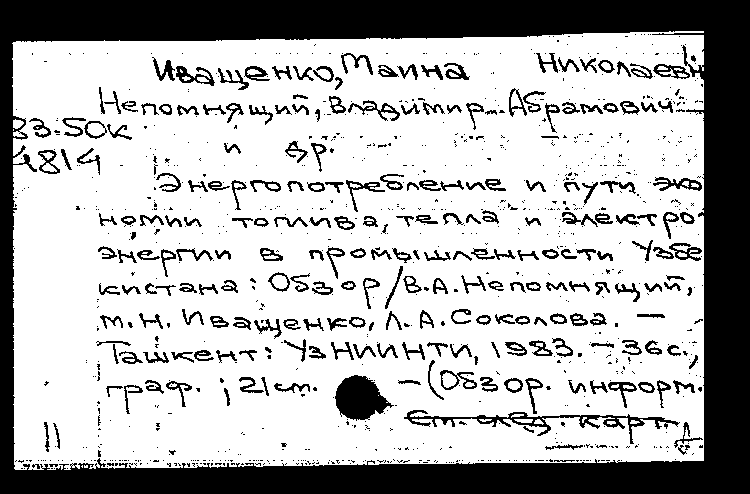 Иващенко, Маина Николаевн
Непомнящий, Владимир Абрамович
83-50к
и др.
4814
Энергопотребление и пути эко
номии топлива, тепла и электро-
энергии в промышленности Узбе
кистана: Обзор/В.А.Непомнящий,
М.Н. Иващенко, Л.А.Соколова. —
Ташкент: УзНИИНТИ, 1983. — 36с.,
граф. ; 21см. — (Обзор. информ.
См. след. карт.
11